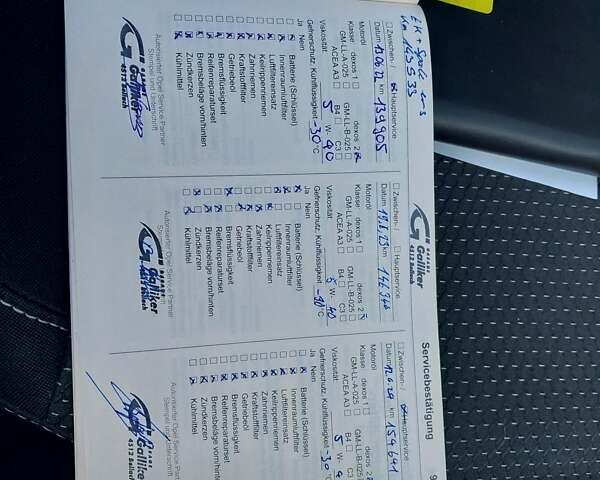 Servicebestätigung
Zwischen- / Hauptservice
Datum 13.06.22 km 139905
Motoröl
Klasse: dexos 1 dexos 2
GM-LL-A-025 GM-LL-B-025
ACEA A3 B4 C3
Viskosität 5 W- 40
Gefrierschutz, Kühlflüssigkeit -30 °C
Ja Nein
Batterie (Schlüssel)
Innenraumluftfilter
Luftfiltereinsatz
Keilrippenriemen
Zahnriemen
Kraftstofffilter
Getriebeöl
Bremsflüssigkeit
Reifenreparaturset
Bremsbeläge vorn/hinten
Zündkerzen
Kühlmittel
Autorisierter Opel Service Partner
Stempel und Unterschrift
GARAGE
Galliker
4512 Bellach
Zwischen- / Hauptservice
GARAGE
Galliker
4512 Bellach
Datum km
Motoröl
Klasse: dexos 1 dexos 2
GM-LL-A-025 GM-LL-B-025
ACEA A3 B4 C3
Viskosität 5 W- 40
Gefrierschutz, Kühlflüssigkeit °C
Ja Nein
Batterie (Schlüssel)
Innenraumluftfilter
Luftfiltereinsatz
Keilrippenriemen
Zahnriemen
Kraftstofffilter
Getriebeöl
Bremsflüssigkeit
Reifenreparaturset
Bremsbeläge vorn/hinten
Zündkerzen
Kühlmittel
Autorisierter Opel Service Partner
GARAGE
Galliker
4512 Bellach
Zwischen- / Hauptservice
Datum 12.6.24 km 154641
Motoröl
Klasse: dexos 1 dexos 2
GM-LL-A-025 GM-LL-B
ACEA A3 B4
Viskosität 5 W-
Gefrierschutz, Kühlflüssigkeit -30
Ja Nein
Batterie (Schlüssel)
Innenraumluftfilter
Luftfiltereinsatz
Keilrippenriemen
Zahnriemen
Kraftstofffilter
Getriebeöl
Bremsflüssigkeit
Reifenreparaturset
Bremsbeläge vorn/hinten
Zündkerzen
Kühlmittel
Autorisierter Opel Service Partner
GARAGE
Galliker
4512 Bellach